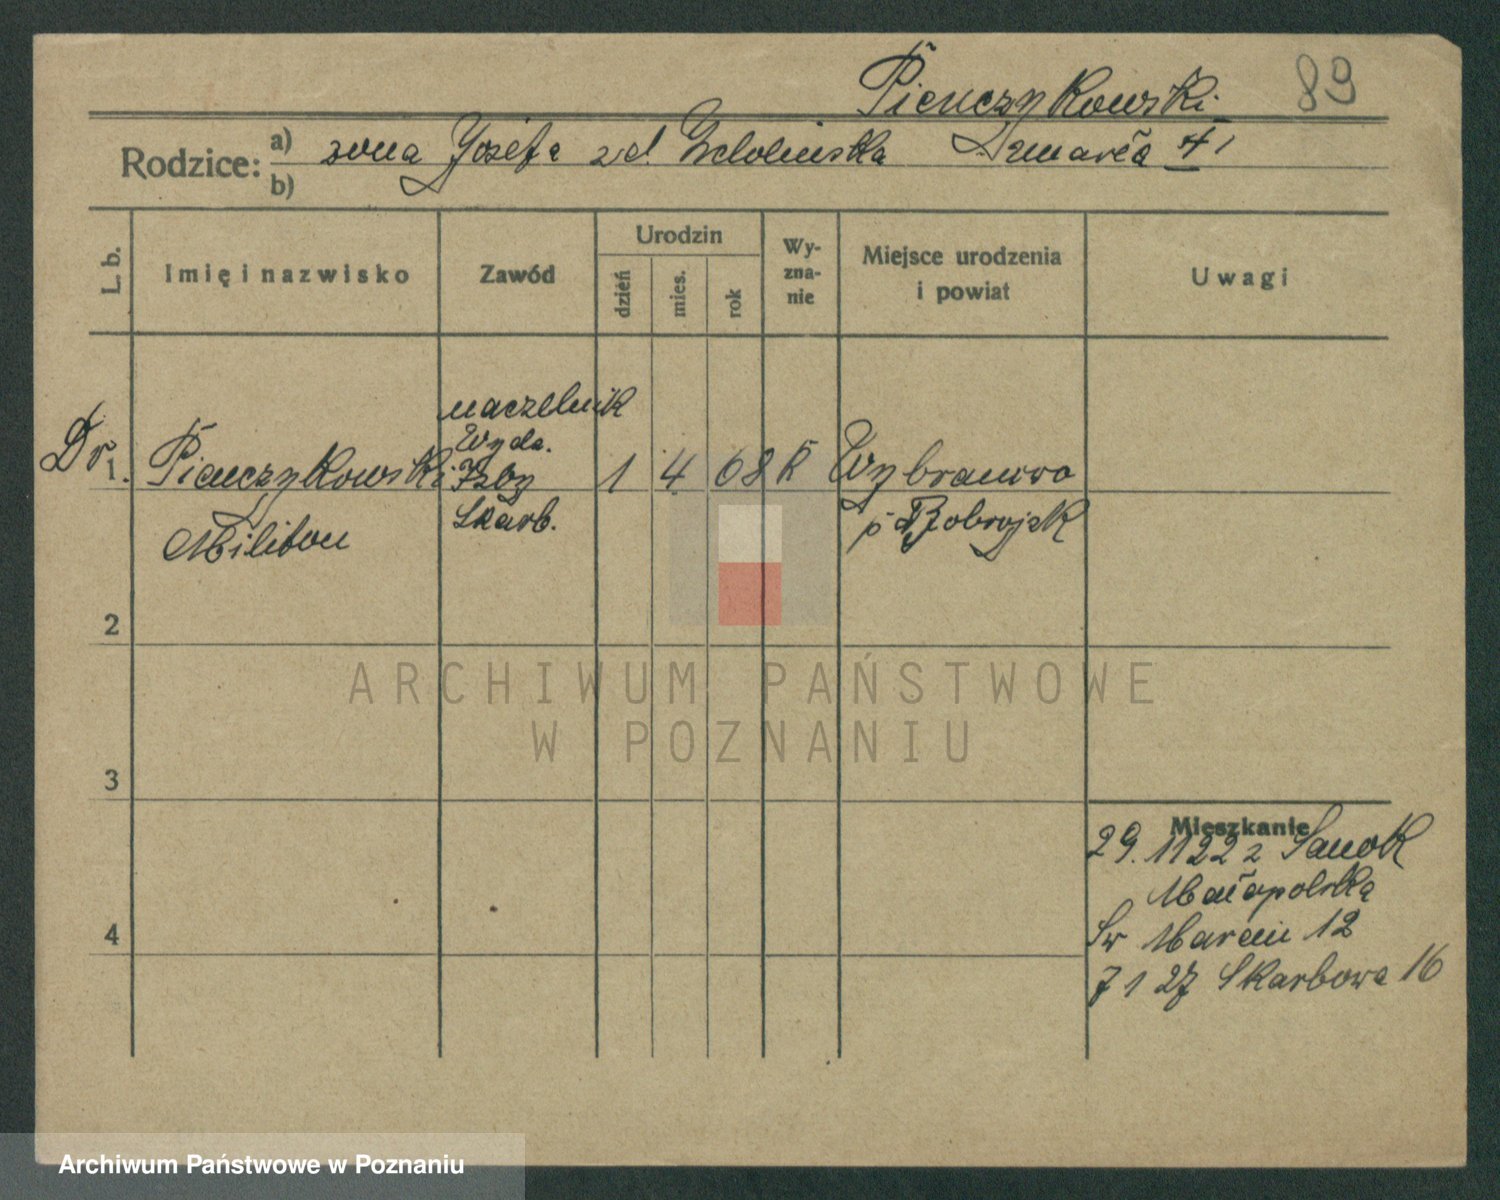 Pieńczykowski
89
Rodzice: a) żona Józefa zd. zmarła
b)
L. b.
Imię i nazwisko
Zawód
Urodzin
dzień
mies.
rok
Wy-
zna-
nie
Miejsce urodzenia
i powiat
Uwagi
Dr
1.
Pieńczykowski
Militon
naczelnik
Wydz.
Izby
Skarb.
1
4
68
k
Wybranowo
p Bobrojsk
2
3
4
Mieszkanie
29. 11 22 z Sanok
Małopolska
Sw Marcin 12
7 1 27 Skarbowa 16
ARCHIWUM PAŃSTWOWE
W POZNANIU
Archiwum Państwowe w Poznaniu